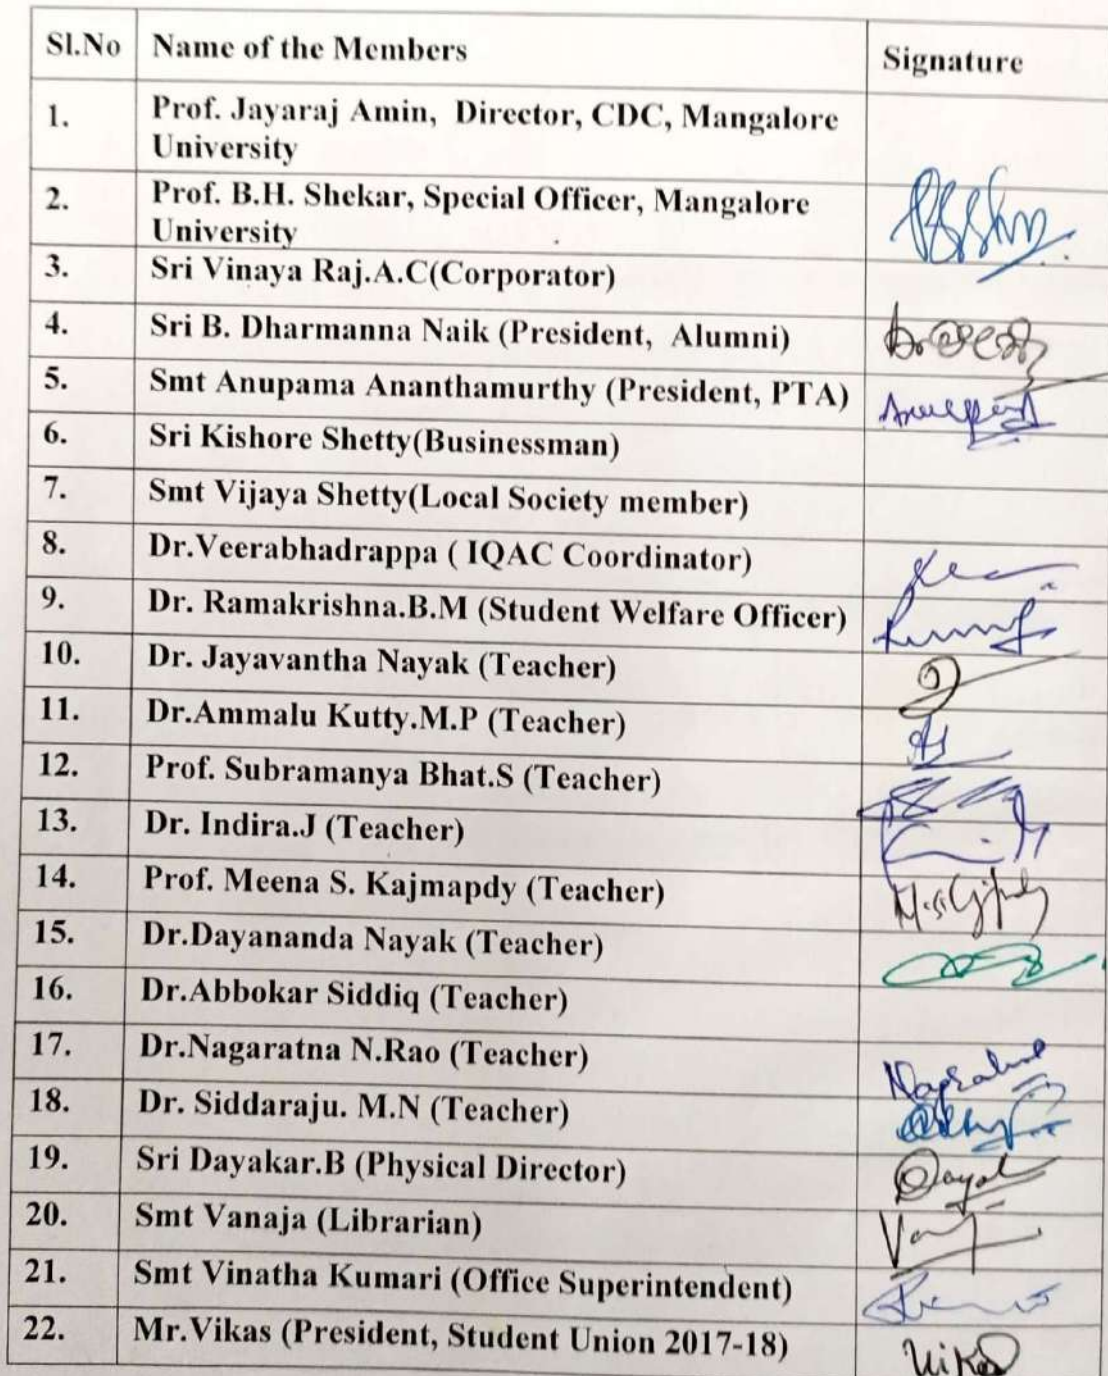 Sl.No Name of the Members Signature
1. Prof. Jayaraj Amin, Director, CDC, Mangalore
University
2. Prof. B.H. Shekar, Special Officer, Mangalore
University
3. Sri Vinaya Raj.A.C(Corporator)
4. Sri B. Dharmanna Naik (President, Alumni)
5. Smt Anupama Ananthamurthy (President, PTA)
6. Sri Kishore Shetty(Businessman)
7. Smt Vijaya Shetty(Local Society member)
8. Dr.Veerabhadrappa ( IQAC Coordinator)
9. Dr. Ramakrishna.B.M (Student Welfare Officer)
10. Dr. Jayavantha Nayak (Teacher)
11. Dr.Ammalu Kutty.M.P (Teacher)
12. Prof. Subramanya Bhat.S (Teacher)
13. Dr. Indira.J (Teacher)
14. Prof. Meena S. Kajmapdy (Teacher)
15. Dr.Dayananda Nayak (Teacher)
16. Dr.Abbokar Siddiq (Teacher)
17. Dr.Nagaratna N.Rao (Teacher)
18. Dr. Siddaraju. M.N (Teacher)
19. Sri Dayakar.B (Physical Director)
20. Smt Vanaja (Librarian)
21. Smt Vinatha Kumari (Office Superintendent)
22. Mr.Vikas (President, Student Union 2017-18)